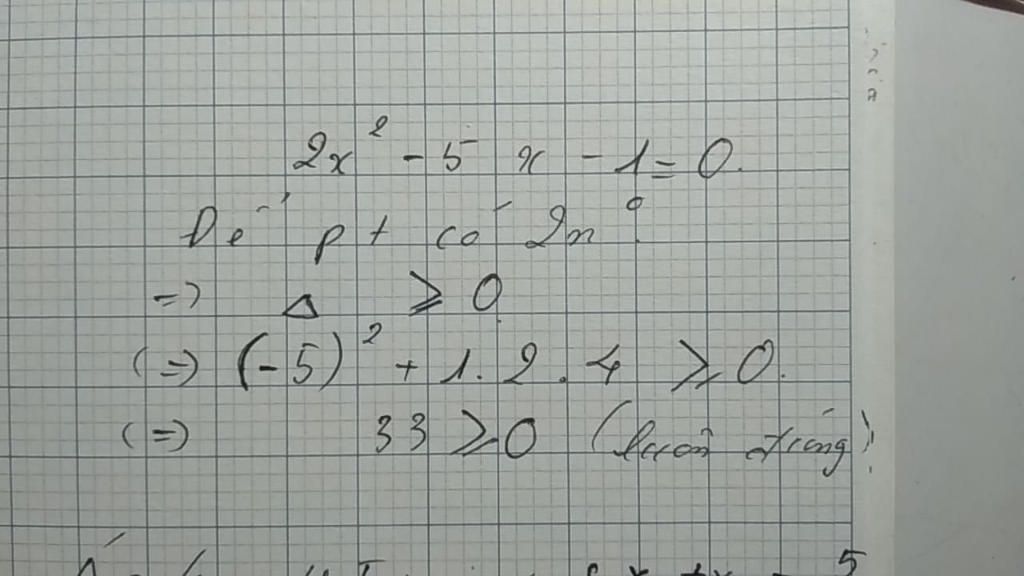 2x² - 5x - 1 = 0.
Để pt có 2n⁰
=> Δ ≥ 0
(=> (-5)² + 1.2.4 ≥ 0.
(=> 33 ≥ 0 (luôn đúng)